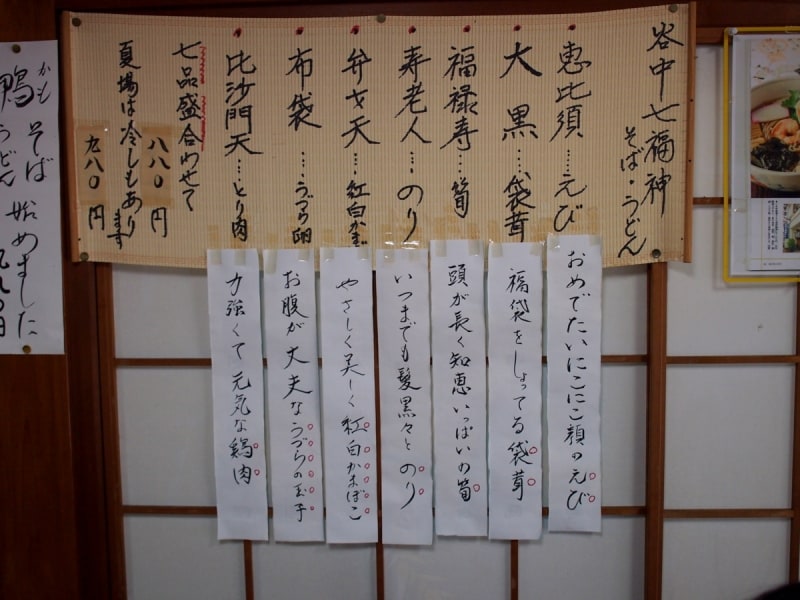 谷中七福神
そば・うどん
恵比須……えび
大黒……袋茸
福禄寿……筍
寿老人……のり
弁才天…紅白かまぼこ
布袋……うづら卵
毘沙門天…とり肉
七品盛合わせて
八八〇円
夏場は冷しもあります
九八〇円
おめでたいにこにこ顔のえび
福袋をしょってる袋茸
頭が長く知恵いっぱいの筍
いつまでも髪黒々とのり
やさしく美しく紅白かまぼこ
お腹が丈夫なうづらの玉子
力強くて元気な鶏肉
かも
鴨そば始めました
うどん
九八〇円